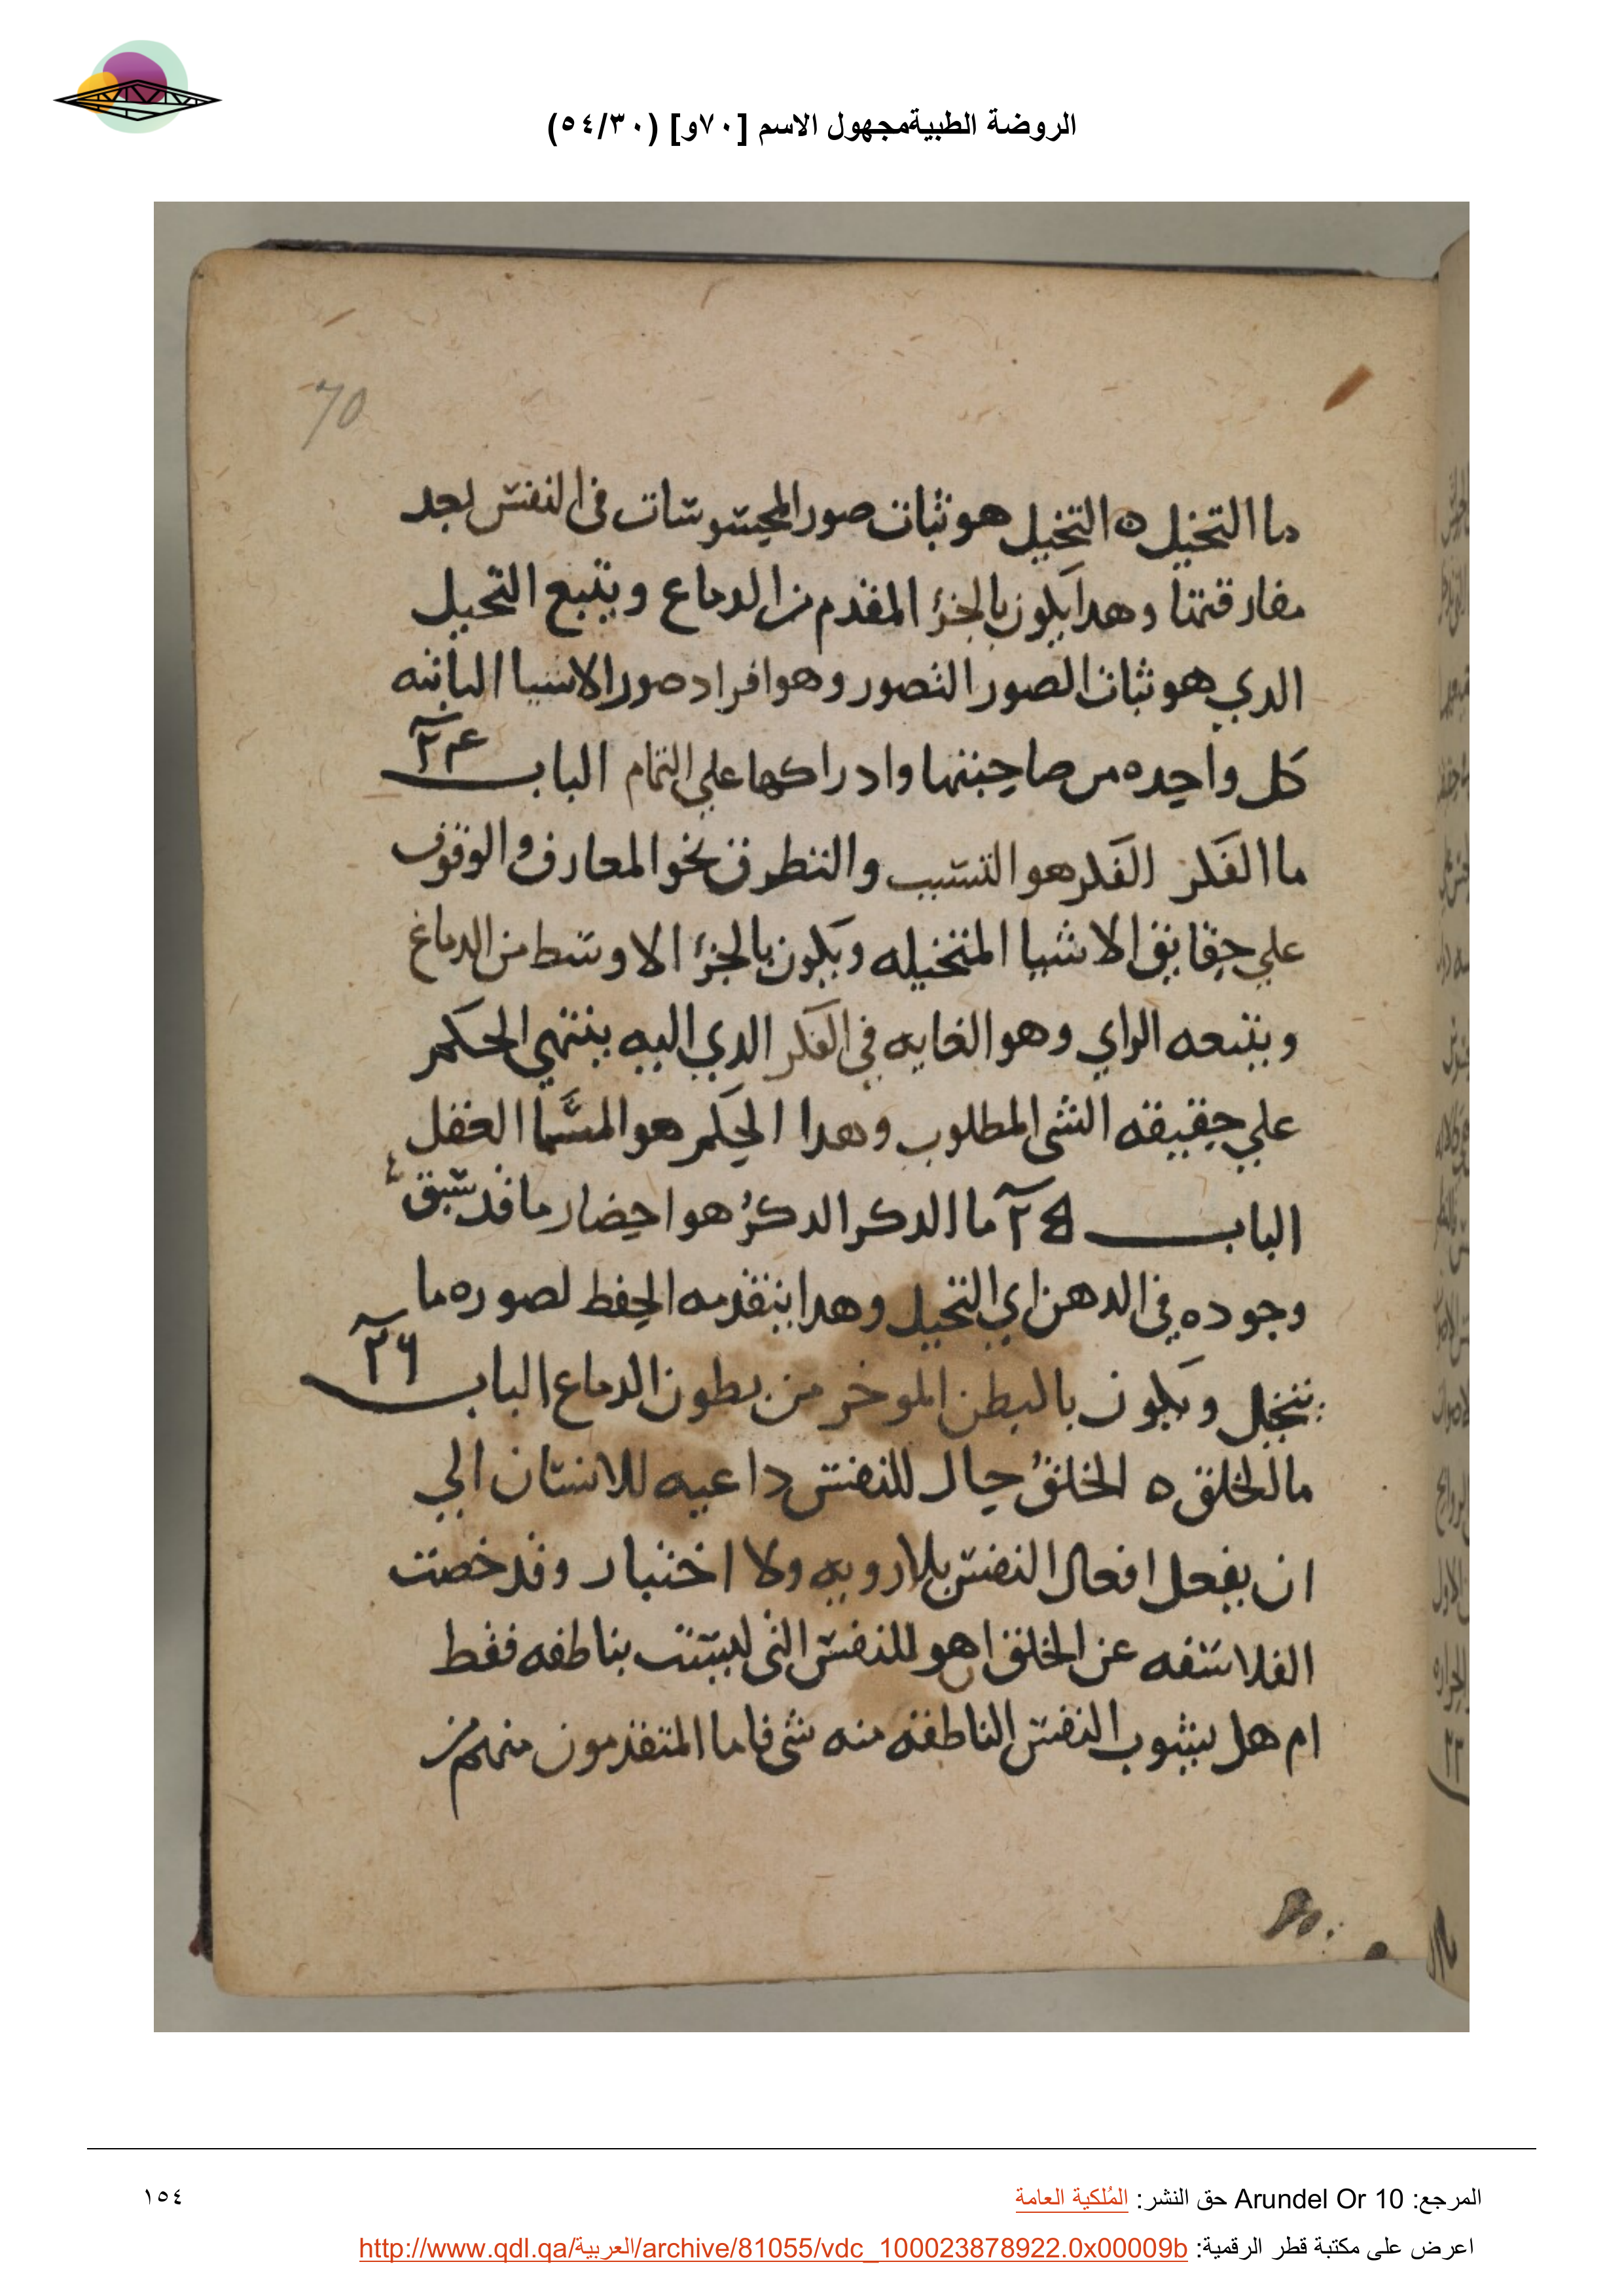 الروضة الطبيةمجهول الاسم [٧٠و] (٥٤/٣٠)
70
ما التخيل ه التخيل هو ثبات صور المحسوسات في النفس بعد
مفارقتها وهدا يكون بالجزء المقدم من الدماغ ويتبع التخيل
الدي هو ثبات الصور التصور وهو افراد صور الاشيا الباينه
كل واحده من صاحبتها وادراكها علي التمام الباب ٢٤
ما الفكر الفكر هو التسبب والتطرق نحو المعارف والوقوف
علي حقايق الاشيا المتخيله ويكون بالجزء الاوسط من الدماغ
ويتبعه الراي وهو الغايه في الفكر الدي اليه ينتهي الحكم
علي حقيقه الشي المطلوب وهدا الحكم هو المسما العقل
الباب ٢٥ ما الدكر الدكر هو احضار ما قد سبق
وجوده في الدهن اي التخيل وهدا يتقدمه الحفظ لصوره ما
تتخيل ويكون بالبطن الموخر من بطون الدماغ الباب ٢٦
ما الخلق ه الخلق حال للنفس داعيه للانسان الي
ان يفعل افعال النفس بلا رويه ولا اختيار وقد خصت
الفلاسفه عن الخلق اهو للنفس التي ليست بناطقه فقط
ام هل يشوب النفس الناطقه منه شي فاما المتقدمون منهم من
المرجع: Arundel Or 10 حق النشر: المُلكية العامة
١٥٤
اعرض على مكتبة قطر الرقمية: http://www.qdl.qa/العربية/archive/81055/vdc_100023878922.0x00009b